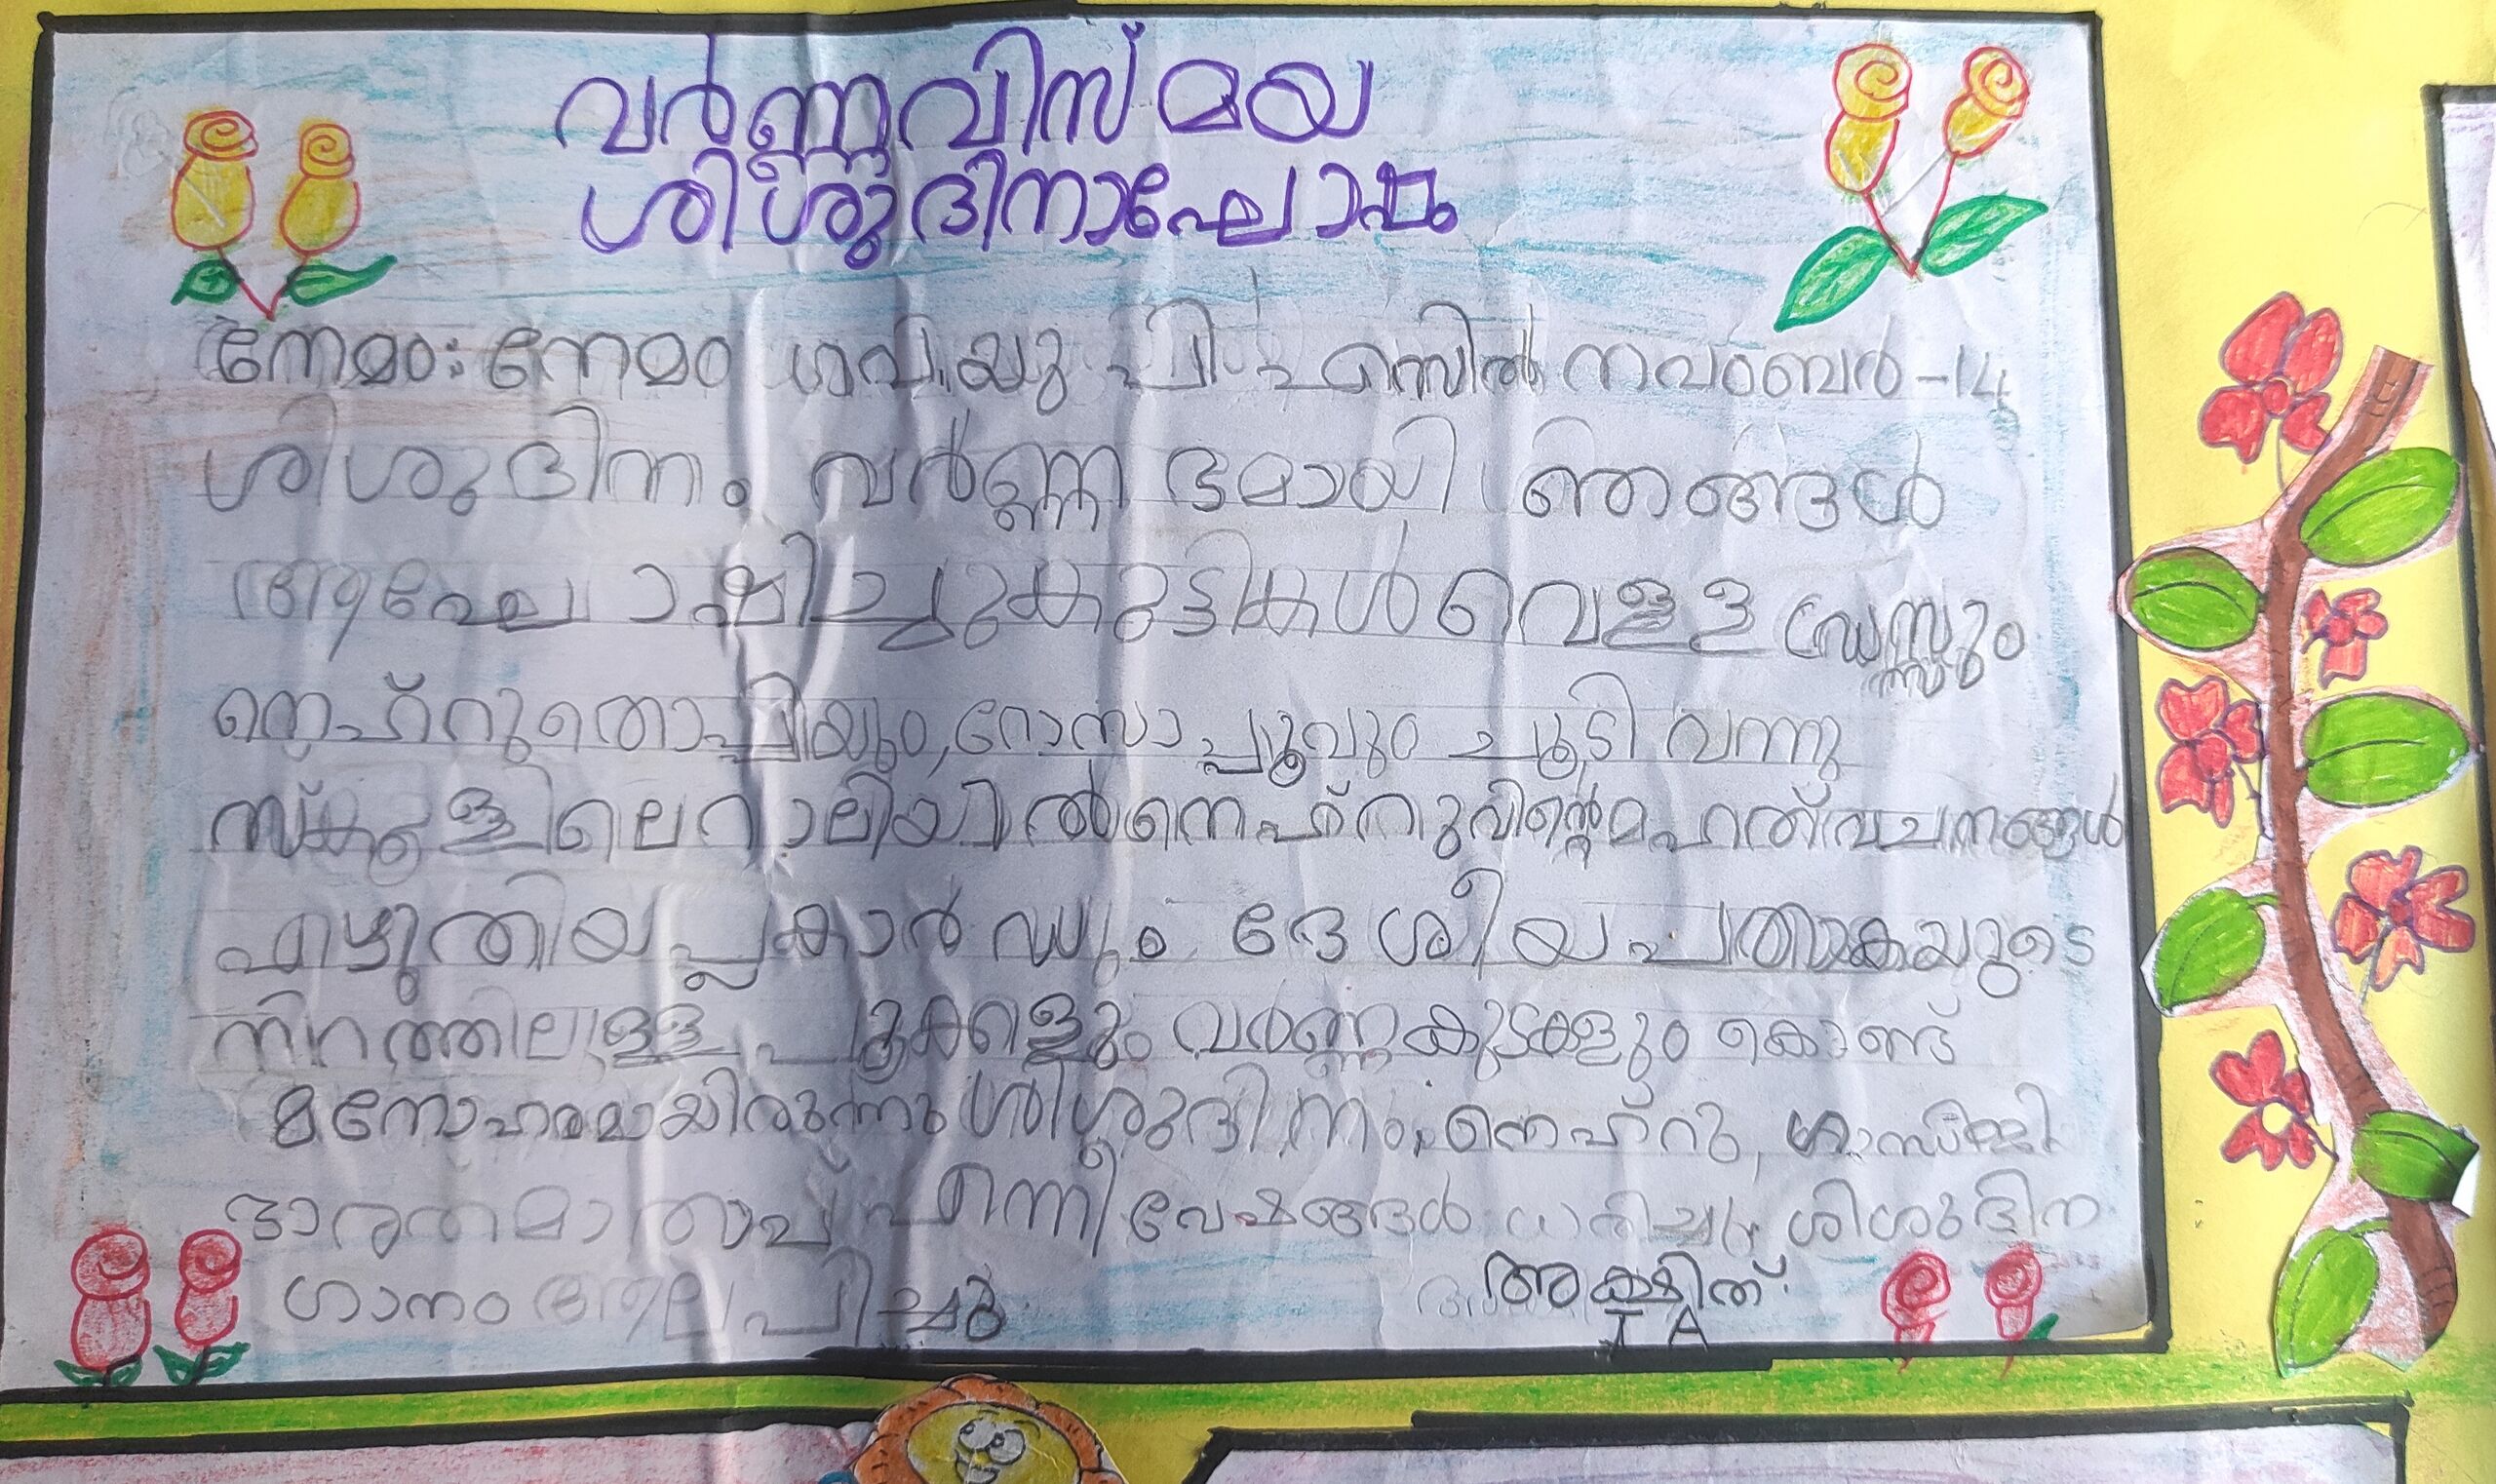 വർണ്ണവിസ്മയ
ശിശുദിനാഘോഷം
നേമം: നേമം ഗവ.യു പി എസിൽ നവംബർ-14
ശിശുദിനം വർണ്ണ ഭമായി ഞങ്ങൾ
ആഘോഷിച്ചുകുട്ടികൾ വെള്ള ഡ്രസ്സും
നെഹ്റുതൊപ്പിയും, റോസാ പ്പൂവും ചൂടി വന്നു
സ്കൂളിലെ റാലിയിൽ നെഹ്റുവിന്റെ മഹത് വചനങ്ങൾ
എഴുതിയ പ്ലകാർഡും ദേശീയ പതാകയുടെ
നിറത്തിലുള്ള പൂക്കളും വർണ്ണകുടകളും കൊണ്ട്
മനോഹരമായിരുന്നു ശിശുദിനം. നെഹ്റു,
ഭാരതമാതാവ് എന്നീ വേഷങ്ങൾ ധരിച്ചു ശിശുദിന
ഗാനം ആലപിച്ചു
അക്ഷിത്
I A